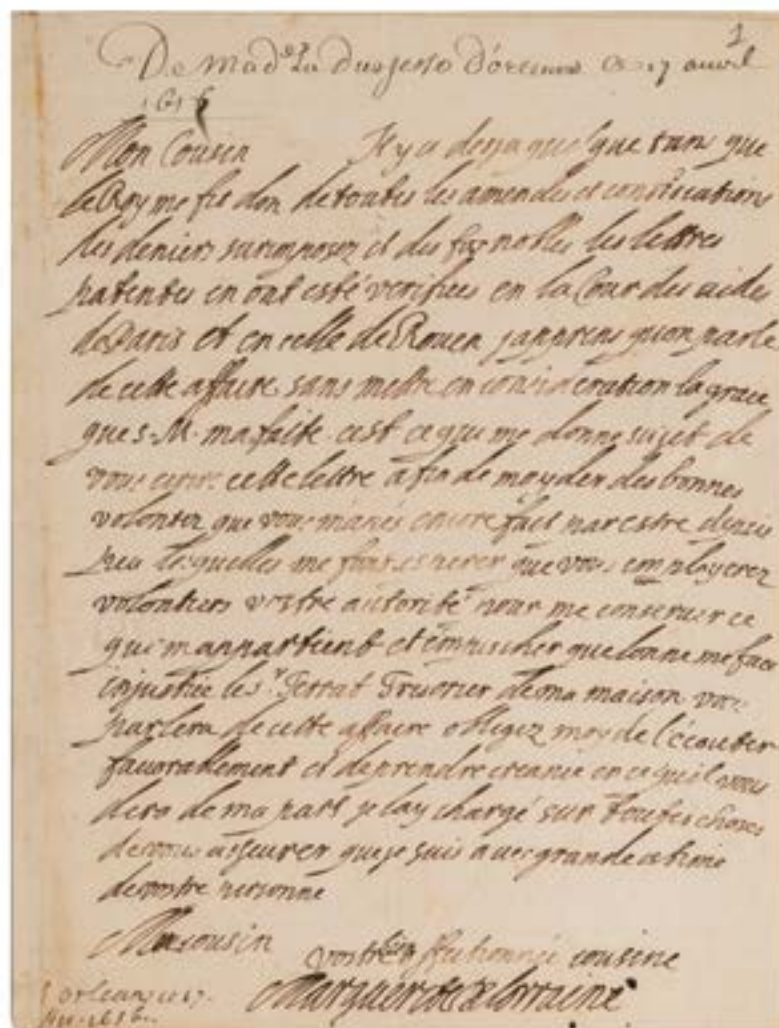 1
De Mad.e La Duchesse d'orleans Ce 17 auril
1656
Mon Cousin Il y a desja quelque tans que
le Roy me fit don de toutes les amendes et confiscations
des deniers surimposez et des faux nobles les lettres
patentes en ont esté verifiees en la Cour des aides
de Paris et en celle de Rouen j'apprens qu'on parle
de cette affaire sans mettre en consideration la grace
que S. M. ma faite cest ce qui me donne sujet de
vous ecrire cette lettre afin de mayder des bonnes
volontez que vous m'aués encore fait parestre depuis
peu lesquelles me font esperer que vous employerez
volontiers vostre autorité pour me conseruer ce
qui m'appartient et empescher que lonne me face
injustice le Sr Tresorier de ma maison vous
parlera de cette affaire obligez moy de l'écouter
fauorablement et de prendre creance en ce qu'il vous
dira de ma part je lay chargé sur toutes choses
de vous asseurer que je suis auec grande estime
de vostre personne
Mon cousin vostre bien affectionnée cousine
Marguerite de lorraine
D'orleans ce 17.
Au. 1656.